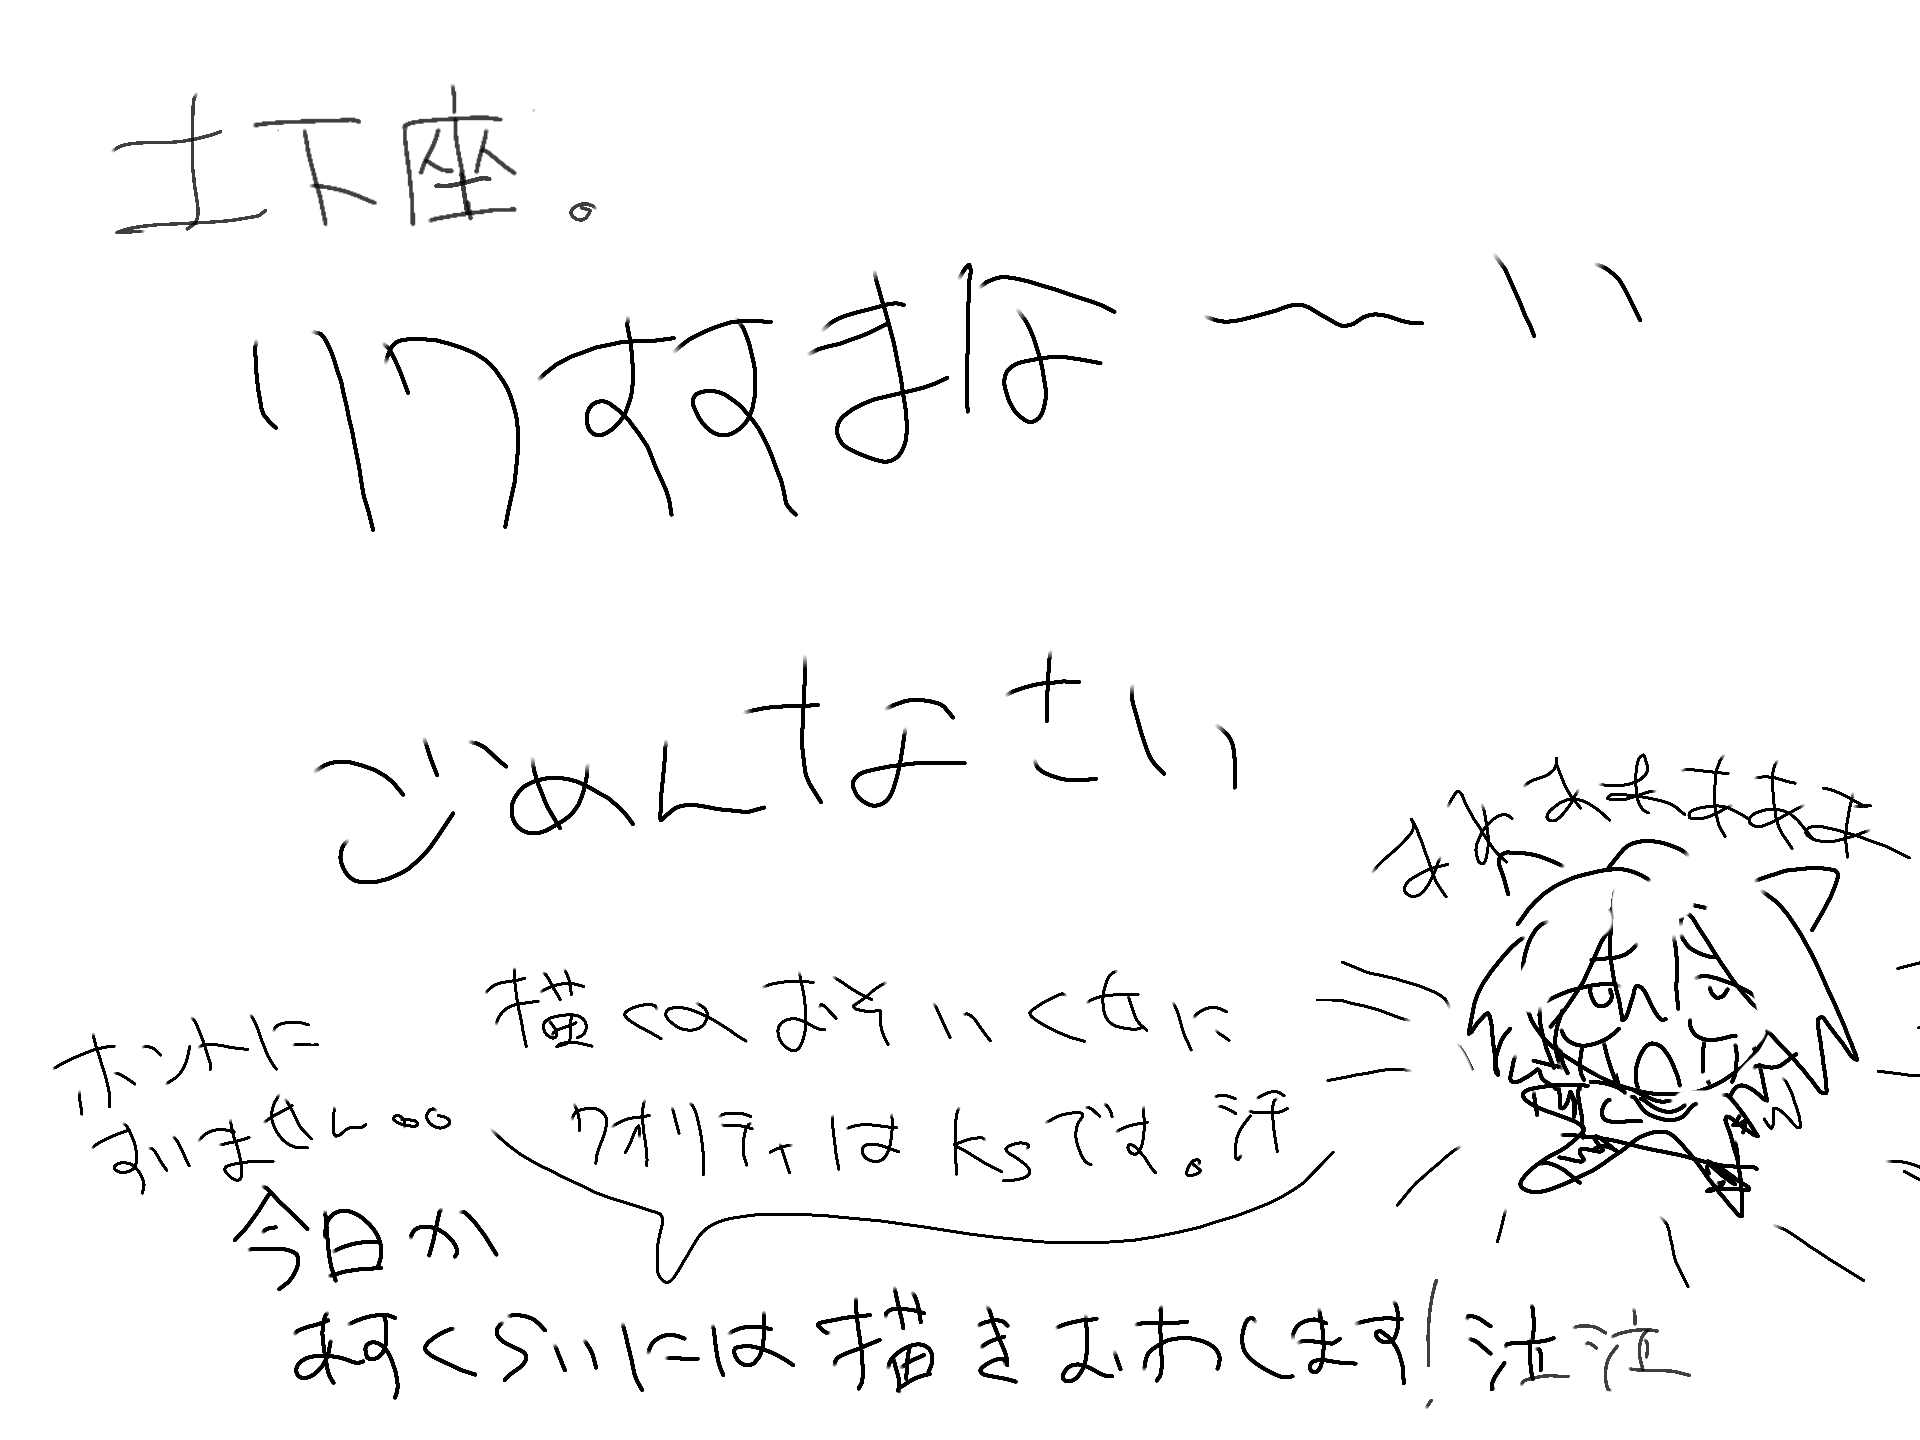 土下座。
リクすすまな〜い
ごめんなさい
描くのおそいくせに
クオリティはksです。汗
ホントに
すいません。。
今日か
あすくらいには描きおわします!泣泣